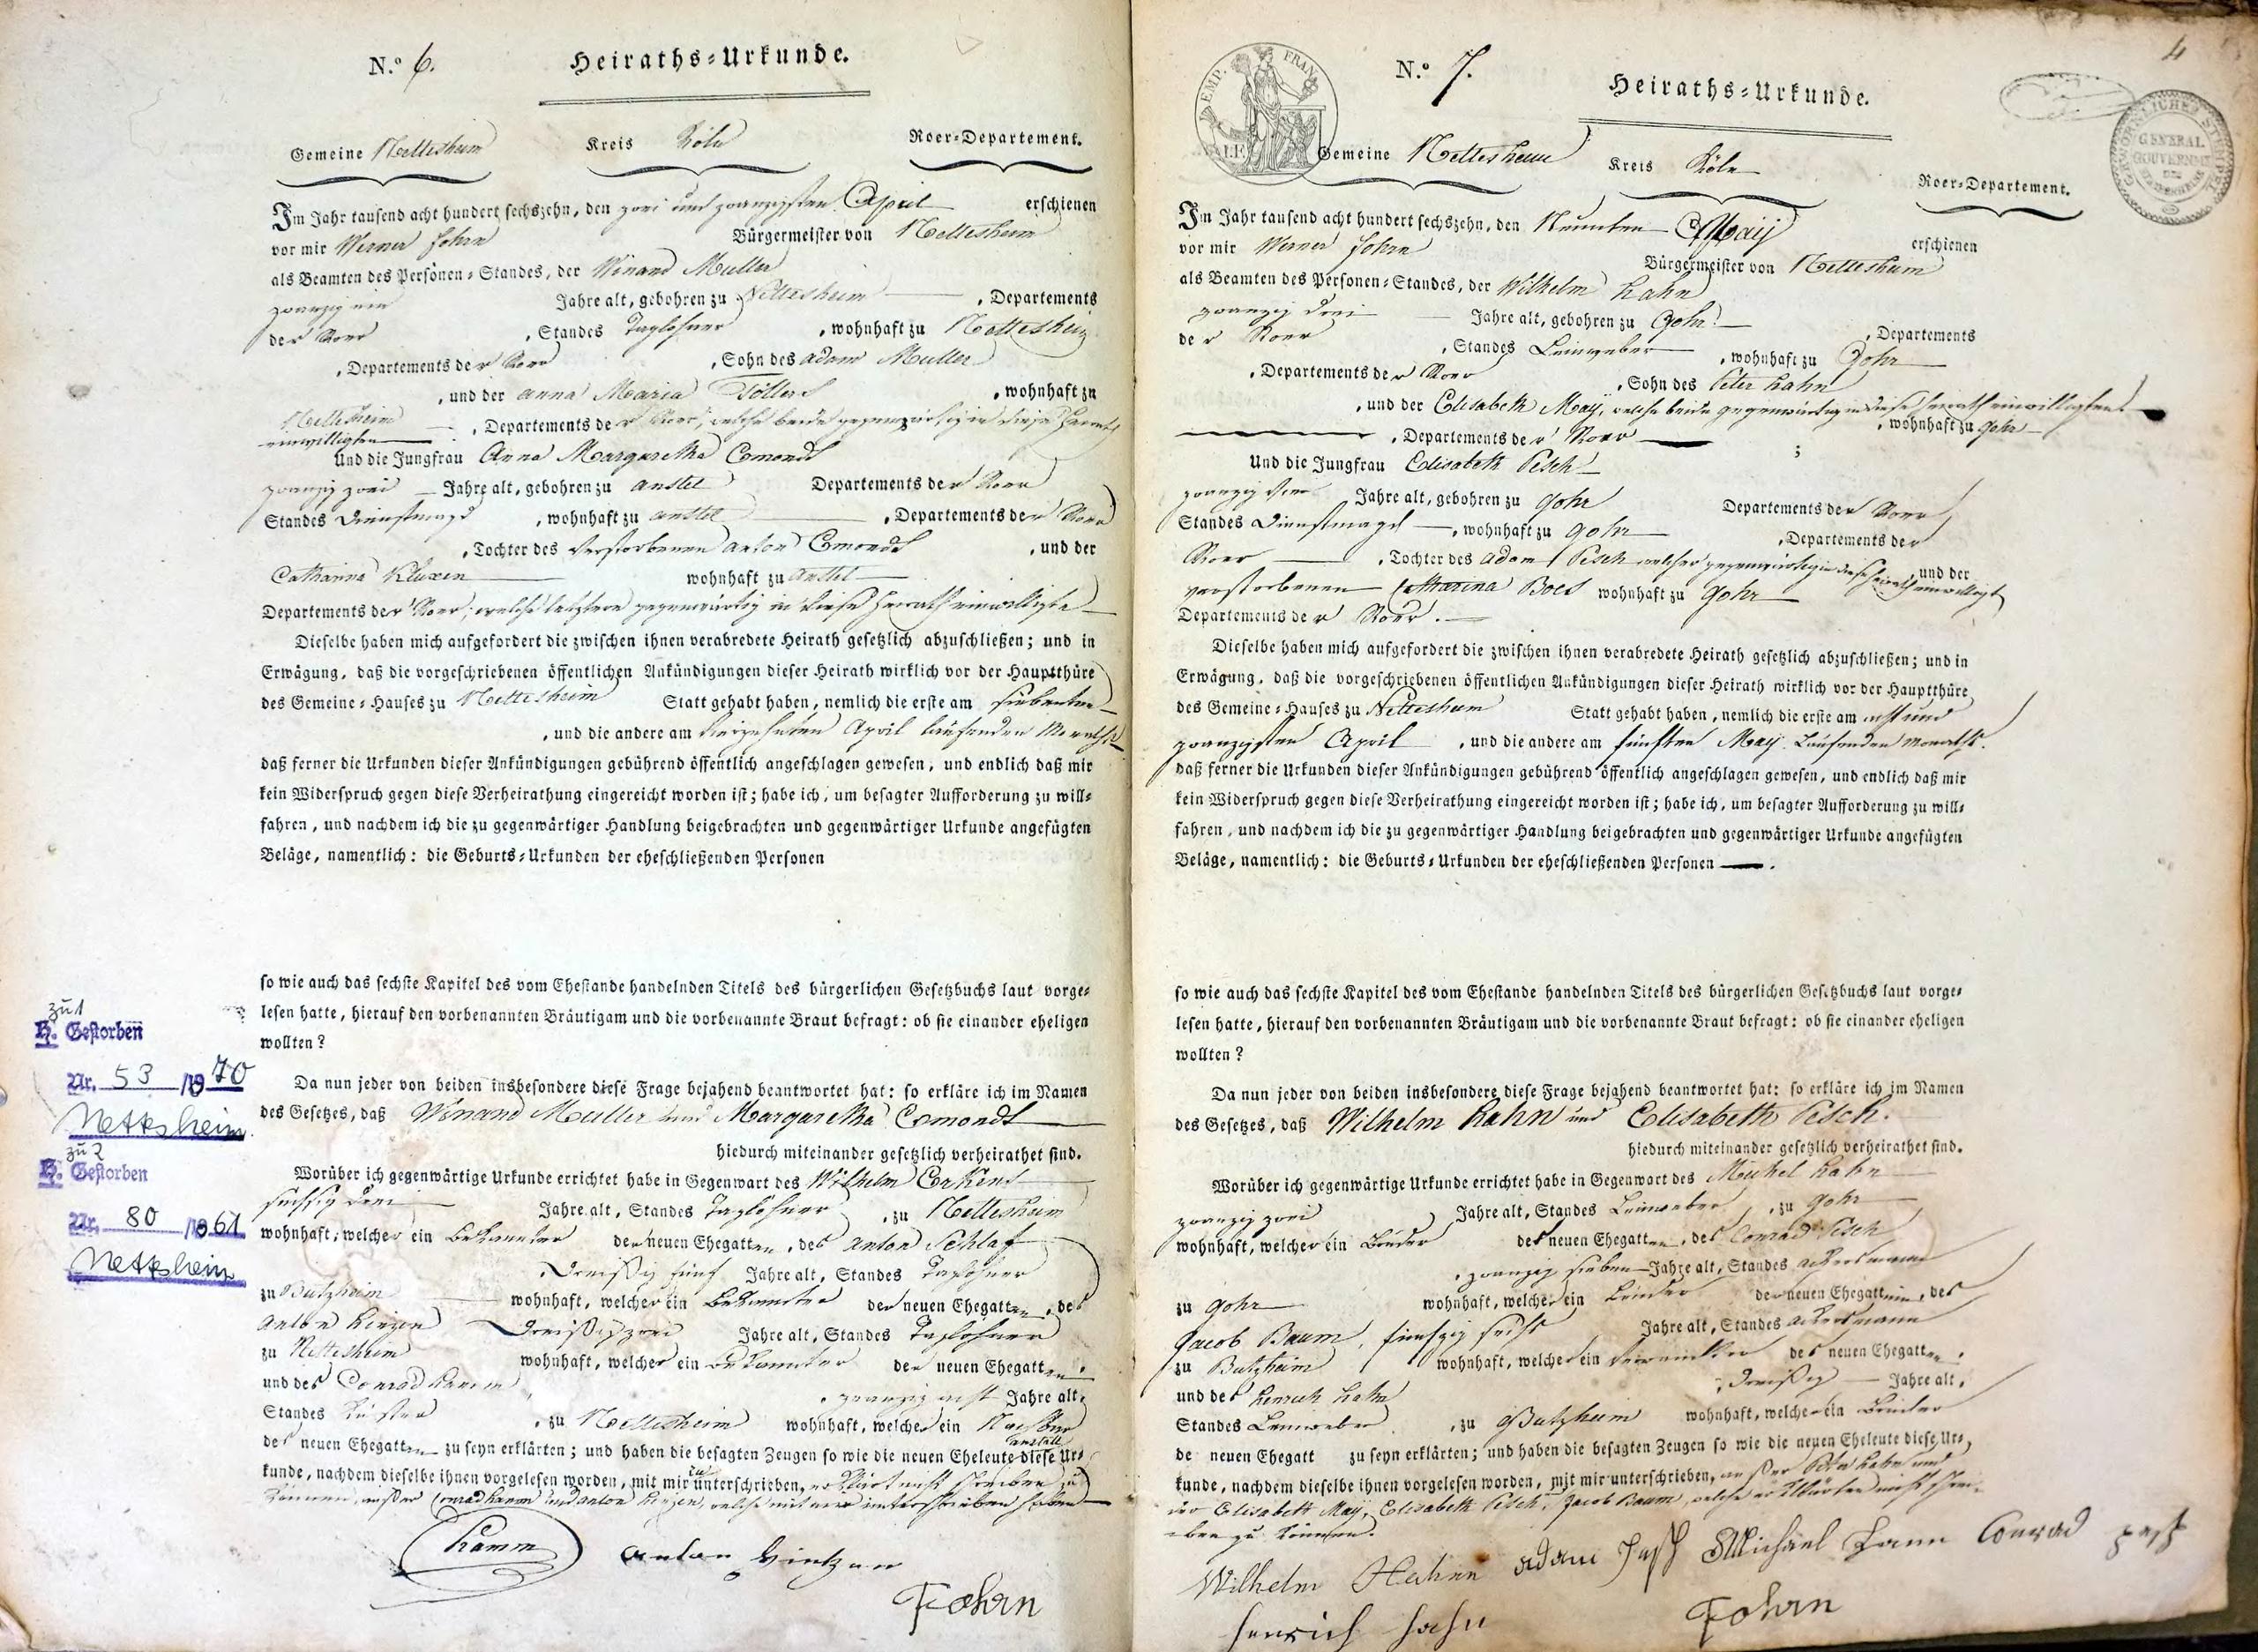 N.º 6.
Heiraths-Urkunde.
Gemeine Nettesheim Kreis Köln Roer-Departement.
Im Jahr tausend acht hundert sechszehn, den zwei und zwanzigsten April erschienen
vor mir Werner Fohrn Bürgermeister von Nettesheim
als Beamten des Personen-Standes, der Winand Muller
zwanzig ein Jahre alt, gebohren zu Nettesheim, Departements
der Roer, Standes Taglöhner, wohnhaft zu Nettesheim
, Departements der Roer, Sohn des adam Muller
, und der anna Maria Töllers, wohnhaft zu
Nettesheim, Departements der Roer, welche beide gegenwärtig in diese Heirath
einwilligten
Und die Jungfrau Anna Margaretha Esmonds
zwanzig zwei Jahre alt, gebohren zu anstel Departements der Roer
Standes Dienstmagd, wohnhaft zu anstel, Departements der Roer
, Tochter des verstorbenen anton Esmonds, und der
Catharina Kluxen wohnhaft zu Anstel
Departements der Roer, welche letztere gegenwärtig in diese Heirath einwilligte
Dieselbe haben mich aufgefordert die zwischen ihnen verabredete Heirath gesetzlich abzuschließen; und in
Erwägung, daß die vorgeschriebenen öffentlichen Ankündigungen dieser Heirath wirklich vor der Hauptthüre
des Gemeine-Hauses zu Nettesheim Statt gehabt haben, nemlich die erste am siebenten
, und die andere am vierzehnten April laufenden Monaths
daß ferner die Urkunden dieser Ankündigungen gebührend öffentlich angeschlagen gewesen, und endlich daß mir
kein Widerspruch gegen diese Verheirathung eingereicht worden ist; habe ich, um besagter Aufforderung zu will-
fahren, und nachdem ich die zu gegenwärtiger Handlung beigebrachten und gegenwärtiger Urkunde angefügten
Beläge, namentlich: die Geburts-Urkunden der eheschließenden Personen
so wie auch das sechste Kapitel des vom Ehestande handelnden Titels des bürgerlichen Gesetzbuchs laut vorge-
lesen hatte, hierauf den vorbenannten Bräutigam und die vorbenannte Braut befragt: ob sie einander eheligen
wollten?
Da nun jeder von beiden insbesondere diese Frage bejahend beantwortet hat: so erkläre ich im Namen
des Gesetzes, daß Winand Muller und Margaretha Esmonds
hiedurch miteinander gesetzlich verheirathet sind.
Worüber ich gegenwärtige Urkunde errichtet habe in Gegenwart des Wilhelm
sechszig drei Jahre alt, Standes Taglöhner, zu Nettesheim
wohnhaft, welcher ein Bekannter der neuen Ehegatten, des anton Schlaf
, Dreißig fünf Jahre alt, Standes Taglöhner
zu Butzheim wohnhaft, welcher ein Bekannter der neuen Ehegatten, des
anton Dreißig zwei Jahre alt, Standes Taglöhner
zu Nettesheim wohnhaft, welcher ein Bekannter der neuen Ehegatten,
und des Conrad Hamm, zwanzig acht Jahre alt,
Standes Küster, zu Nettesheim wohnhaft, welcher ein Nachbar
des neuen Ehegatten zu seyn erklärten; und haben die besagten Zeugen so wie die neuen Eheleute diese Ur-
kunde, nachdem dieselbe ihnen vorgelesen worden, mit mir unterschrieben, erklärt nicht schreiben zu
können, außer Conrad Hamm und anton welche mit mir unterschrieben haben
Hamm
anton
Fohrn
zu 1
H. Gestorben
Nr. 53 /1970
Nettesheim
zu 2
H. Gestorben
Nr. 80 /1861
Nettesheim
4
EMP. FRAN
GENERAL
GOUVERNMT
N.º 7.
Heiraths-Urkunde.
Gemeine Nettesheim Kreis Köln Roer-Departement.
Im Jahr tausend acht hundert sechszehn, den Neunten Maij erschienen
vor mir Werner Fohrn Bürgermeister von Nettesheim
als Beamten des Personen-Standes, der Wilhelm Hahn
zwanzig drei Jahre alt, gebohren zu Gohr, Departements
der Roer, Standes Leinweber, wohnhaft zu Gohr
, Departements der Roer, Sohn des Peter Hahn
, und der Elisabeth Maij, welche beide gegenwärtig in diese heirath einwilligten
, wohnhaft zu Gohr
, Departements der Roer ;
Und die Jungfrau Elisabeth Pesch
zwanzig vier Jahre alt, gebohren zu Gohr Departements der Roer
Standes Dienstmagd, wohnhaft zu Gohr, Departements der
Roer, Tochter des adam Pesch welcher gegenwärtig in diese heirath einwilligt, und der
verstorbenen Catharina Boes wohnhaft zu Gohr
Departements der Roer.
Dieselbe haben mich aufgefordert die zwischen ihnen verabredete Heirath gesetzlich abzuschließen; und in
Erwägung, daß die vorgeschriebenen öffentlichen Ankündigungen dieser Heirath wirklich vor der Hauptthüre
des Gemeine-Hauses zu Nettesheim Statt gehabt haben, nemlich die erste am acht und
zwanzigsten April, und die andere am fünften May laufenden Monaths.
daß ferner die Urkunden dieser Ankündigungen gebührend öffentlich angeschlagen gewesen, und endlich daß mir
kein Widerspruch gegen diese Verheirathung eingereicht worden ist; habe ich, um besagter Aufforderung zu will-
fahren, und nachdem ich die zu gegenwärtiger Handlung beigebrachten und gegenwärtiger Urkunde angefügten
Beläge, namentlich: die Geburts-Urkunden der eheschließenden Personen —.
so wie auch das sechste Kapitel des vom Ehestande handelnden Titels des bürgerlichen Gesetzbuchs laut vorge-
lesen hatte, hierauf den vorbenannten Bräutigam und die vorbenannte Braut befragt: ob sie einander eheligen
wollten?
Da nun jeder von beiden insbesondere diese Frage bejahend beantwortet hat: so erkläre ich im Namen
des Gesetzes, daß Wilhelm Hahn und Elisabeth Pesch.
hiedurch miteinander gesetzlich verheirathet sind.
Worüber ich gegenwärtige Urkunde errichtet habe in Gegenwart des Michel Hahn
zwanzig zwei Jahre alt, Standes Leinweber, zu Gohr
wohnhaft, welcher ein Bruder des neuen Ehegatten, des Conrad Pesch
, zwanzig sieben Jahre alt, Standes Ackersmann
zu Gohr wohnhaft, welcher ein Bruder der neuen Ehegattin, des
Jacob Baum, fünfzig sechs Jahre alt, Standes Ackersmann
zu Butzheim wohnhaft, welcher ein Verwandter des neuen Ehegatten,
und des Henrich Hahn, Dreißig Jahre alt,
Standes Leinweber, zu Butzheim wohnhaft, welcher ein Bruder
de neuen Ehegatt zu seyn erklärten; und haben die besagten Zeugen so wie die neuen Eheleute diese Ur-
kunde, nachdem dieselbe ihnen vorgelesen worden, mit mir unterschrieben, außer Peter Hahn und
der Elisabeth Maij, Elisabeth Pesch, Jacob Baum, welche erklärten nicht schrei-
ben zu können.
Wilhelm Hahn adam Pesch Michael Hann Conrad Pesch
Henrich Hahn Fohrn